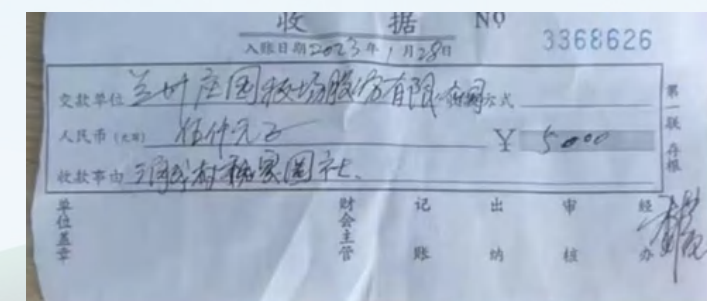 收 据 NO 3368626
入账日期2023年1月28日
交款单位 兰州庄园牧场股份有限公司 方式
人民币(大写) 伍仟元正 ¥ 5000
收款事由
第一联 存根
单位盖章 财会主管 记账 出纳 审核 经办